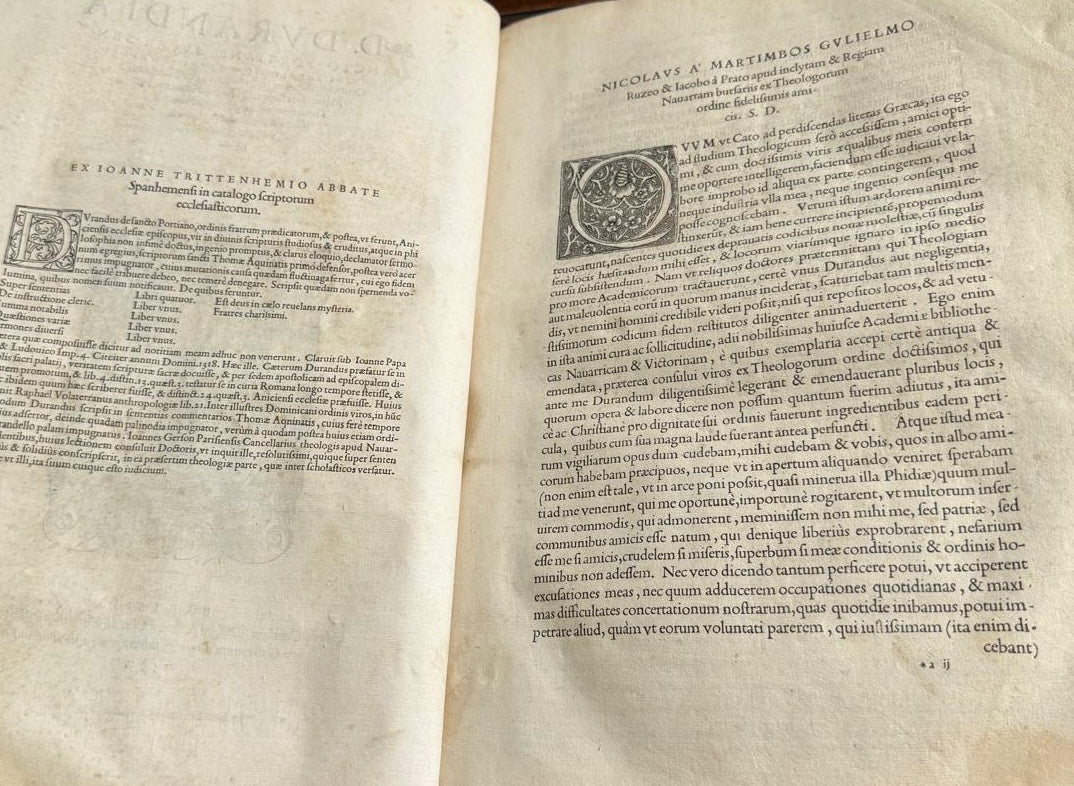 EX IOANNE TRITTENHEMIO ABBATE
Spanhemensi in catalogo scriptorum
ecclesiasticorum.
DVrandus de sancto Portiano, ordinis fratrum prædicatorum, & postea, vt ferunt, Ani-
ciensis ecclesiæ episcopus, vir in diuinis scripturis studiosus & eruditus, atque in phi
losophia non infimè doctus, ingenio promptus, & clarus eloquio, declamator sermo-
num egregius, scriptorum sancti Thomæ Aquinatis primò defensor, postea verò acer
rimus impugnator, cuius mutationis causa quædam fluctuagā fertur, cui ego fidem
nec facilè tribuere debeo, nec temerè denegare. Scripsit quædam non spernenda vo-
lumina, quibus nomen suum notificauit. De quibus feruntur.
Super sententias Libri quatuor. Est deus in cœlo reuelans mysteria.
De instructione cleric. Liber vnus. Fratres charissimi.
umma notabilis Liber vnus.
Quæstiones variæ Liber vnus.
rmones diuersi Liber vnus.
etera quæ composuisse dicitur ad notitiam meam adhuc non venerunt. Claruit sub Ioanne Papa
& Ludouico Imp. 4. Citeiter annum Domini. 1318. Hæc ille. Cæterum Durandus præfatur se in
lis sacri palatij, veritatem scripturæ sacræ docuisse, & per sedem apostolicam ad episcopalem di-
tem promotum, & lib. 4. distin. 13. quæst. 3. testatur se in curia Romana longo tempore stetisse, &
ibidem quum hæc scriberet fuisse, & distinct. 24. quæst. 3. Aniciensi ecclesiæ præfuisse. Huius
nit Raphael Volaterranus anthropologiæ lib. 21. Inter illustres Dominicani ordinis viros, in hūc
modum Durandus scripsit in sententias commentarios Thomæ Aquinatis, cuius ferè tempore
ius adsertor, deinde quadam palinodia impugnator, verùm à quodam postea huius etiam ordi-
randello palam impugnatur. Ioannes Gerson Parisiensis Cancellarius theologis apud Nauar-
dentibus, huius lectionem consuluit Doctoris, vt inquit ille, resolutissimi, quique super senten
s & solidius conscripserit, in ea præsertim theologiæ parte, quæ inter scholasticos versatur.
vt illi, ita suum cuique esto iudicium.
NICOLAVS A' MARTIMBOS GVLIELMO
Ruzeo & Iacobo à Prato apud inclytam & Regiam
Nauarram bursariis ex Theologorum
ordine fidelissimis ami-
cis. S. D.
QVVM vt Cato ad perdiscendas literas Græcas, ita ego
ad studium Theologicum serò accessissem, amici opti-
mi, & cum doctissimis viris æqualibus meis conferri
me oportere intelligerem, faciendum esse iudicaui vt la-
bore improbo id aliqua ex parte contingerem, quod
neque industria vlla mea, neque ingenio consequi me
posse cognoscebam. Verum istum ardorem animi re-
stinxerūt, & iam bene currere incipientē, propemodum
reuocarunt, nascentes quotidie ex deprauatis codicibus nouæ molestiæ, cū singulis
ferè locis hæsitandum mihi esset, & locorum viarumque ignaro in ipso medio
cursu subsistendum. Nam vt reliquos doctores prætermittam qui Theologiam
pro more Academicorum tractauerunt, certè vnus Durandus aut negligentia,
aut maleuolentia eorū in quorum manus inciderat, scaturiebat tam multis men-
dis, vt nemini homini credibile videri possit, nisi qui repositos locos, & ad vetu-
stissimorum codicum fidem restitutos diligenter animaduerterit. Ego enim
in ista animi cura ac sollicitudine, adii nobilissimas huiusce Academiæ bibliothe-
cas Nauarricam & Victorinam, è quibus exemplaria accepi certè antiqua &
emendata, præterea consului viros ex Theologorum ordine doctissimos, qui
ante me Durandum diligentissimè legerant & emendauerant pluribus locis,
quorum opera & labore dicere non possum quantum fuerim adiutus, ita ami-
cè ac Christianè pro dignitate sui ordinis fauerunt ingredientibus eadem peri-
cula, quibus cum sua magna laude fuerant antea perfuncti. Atque istud mea-
rum vigiliarum opus dum cudebam, mihi cudebam & vobis, quos in albo ami-
corum habebam præcipuos, neque vt in apertum aliquando veniret sperabam
(non enim est tale, vt in arce poni possit, quasi minerua illa Phidiæ) quum mul-
ti ad me venerunt, qui me oportunè, importunè rogitarent, vt multorum inser-
uirem commodis, qui admonerent, meminissem non mihi me, sed patriæ, sed
communibus amicis esse natum, qui denique liberiùs exprobrarent, nefarium
esse me si amicis, crudelem si miseris, superbum si meæ conditionis & ordinis ho-
minibus non adessem. Nec vero dicendo tantum perficere potui, vt acciperent
excusationes meas, nec quum adducerem occupationes quotidianas, & maxi
mas difficultates concertationum nostrarum, quas quotidie inibamus, potui im-
petrare aliud, quàm vt eorum voluntati parerem, qui iustissimam (ita enim di-
cebant)
*a ij